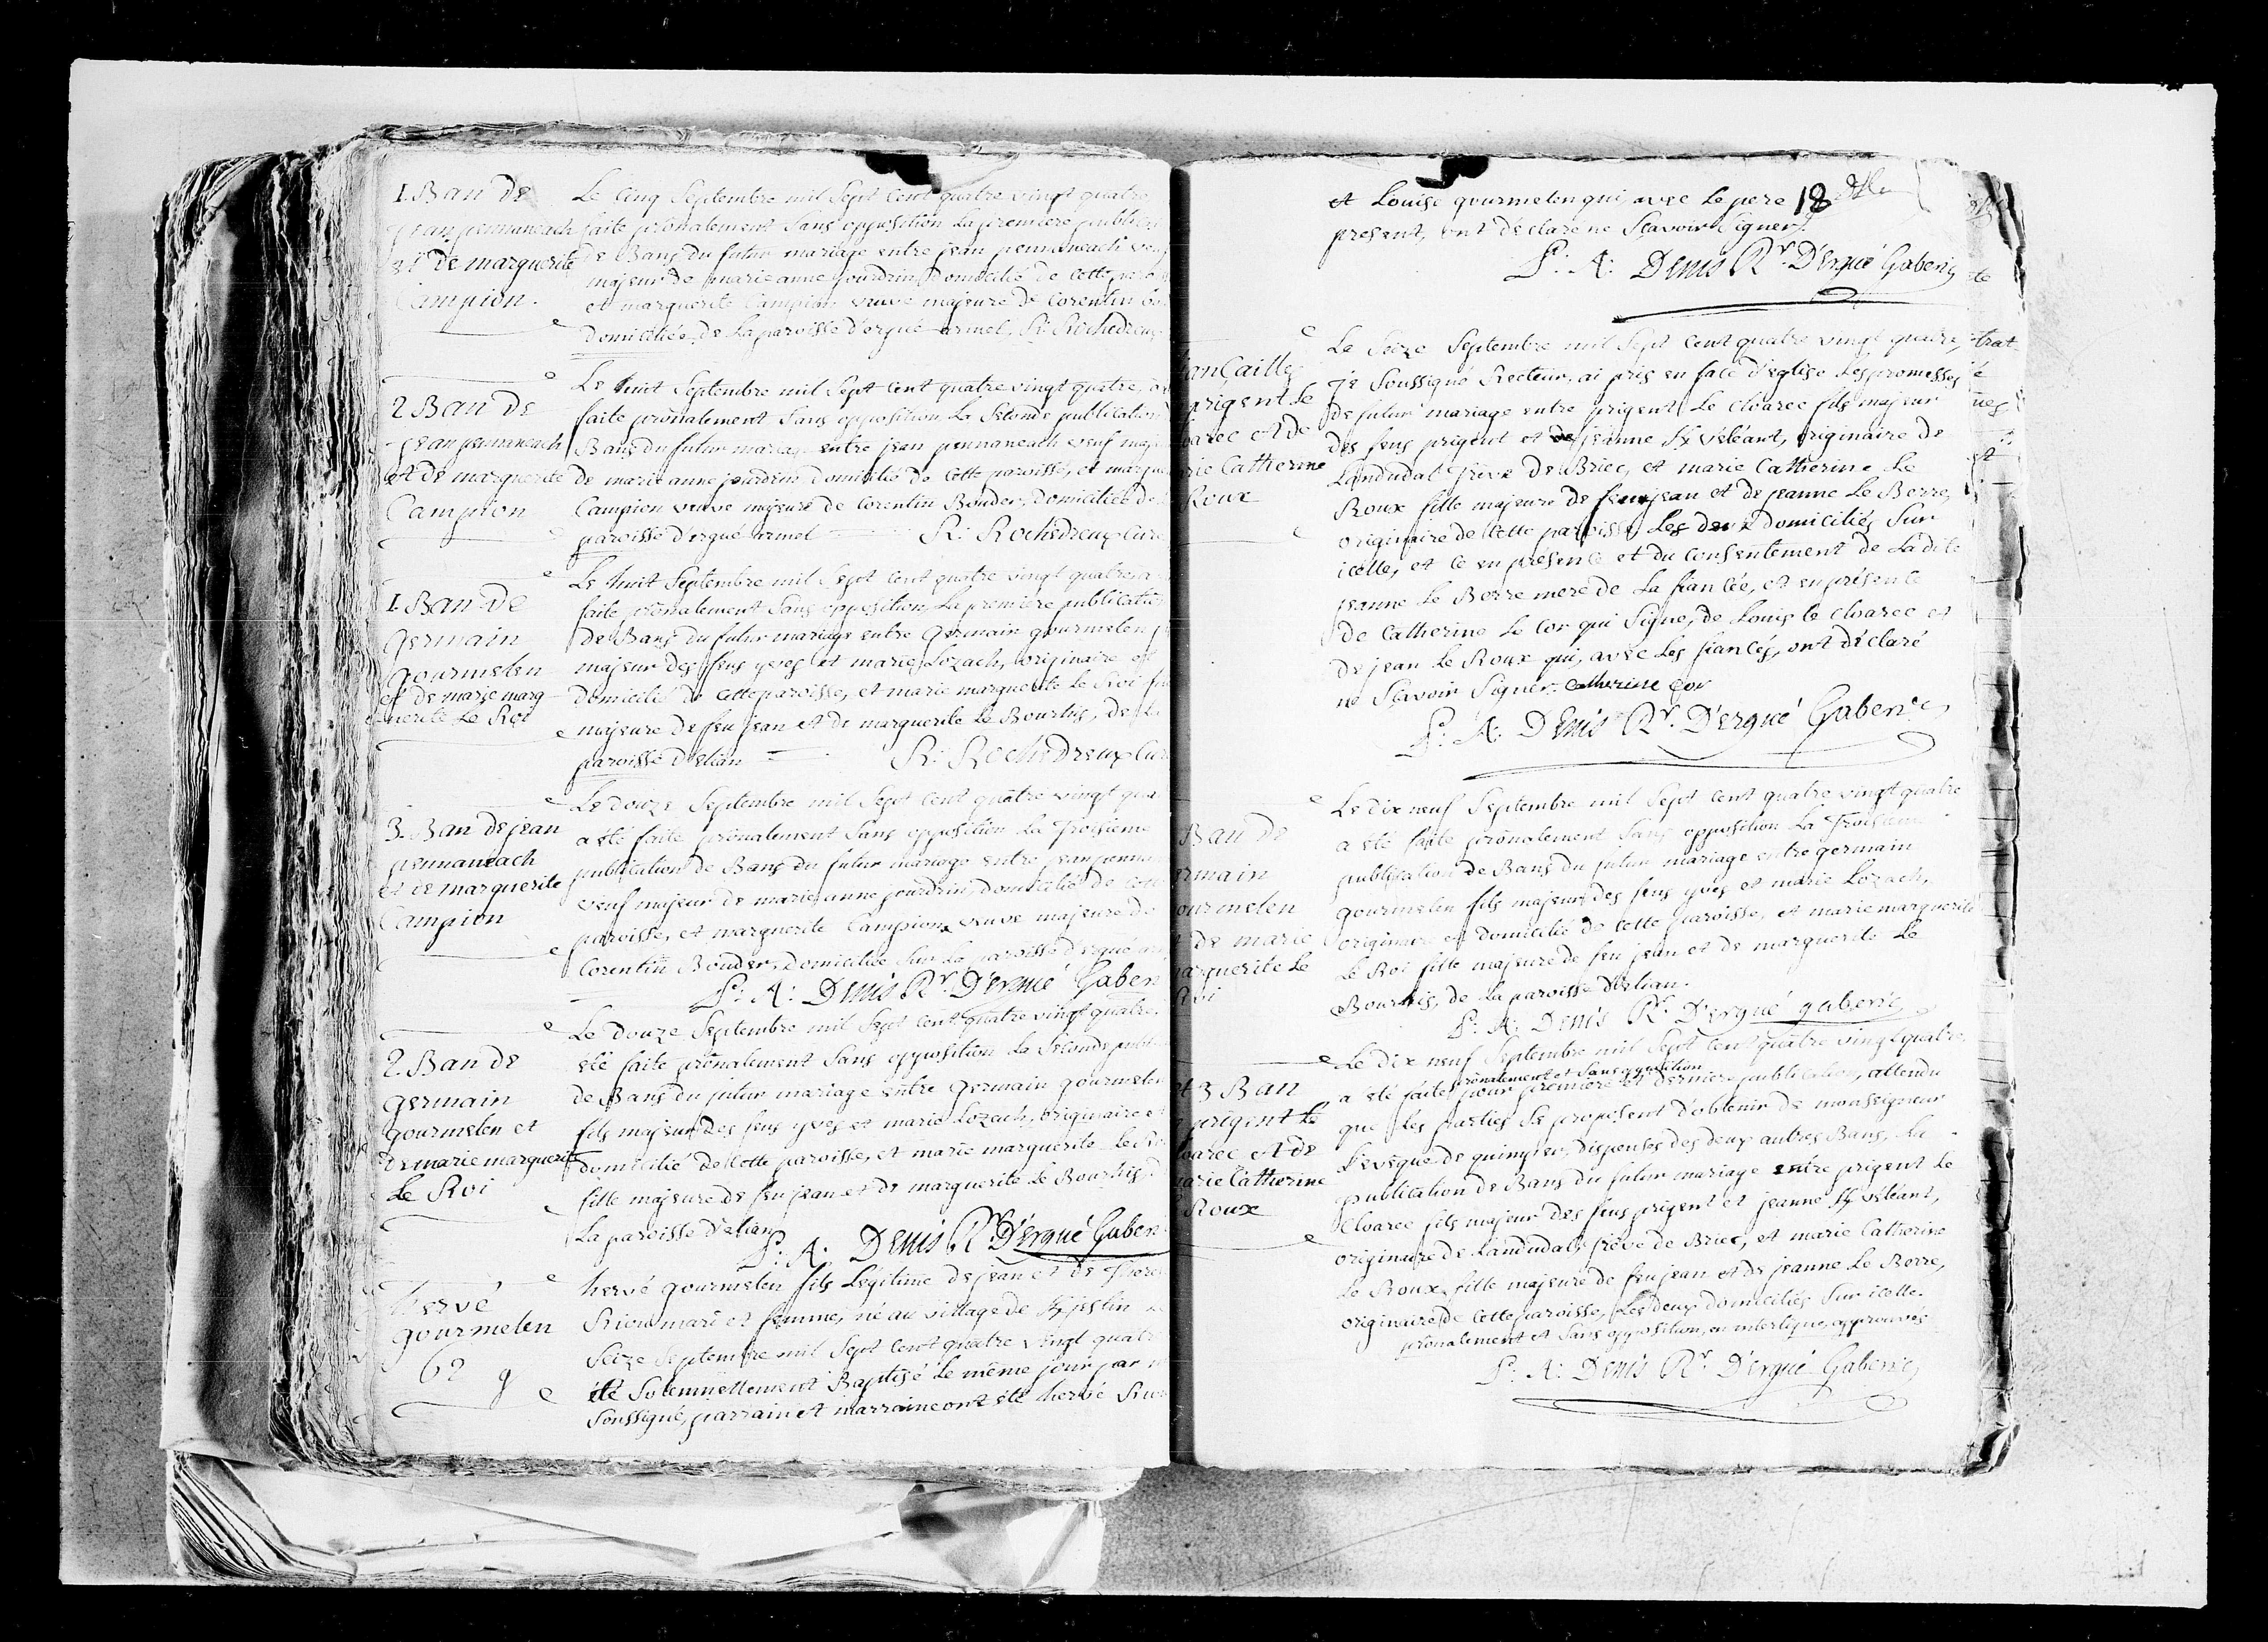 1. Ban de
jean pennaneach
et de marguerite
Campion.
Le cinq Septembre mil Sept cent quatre vingt quatre
faite prônalement Sans opposition La premiere public
de Bans du futur mariage entre jean pennaneach veu
majeur de marie anne jourdrin, domicilié de cette paro
et marguerite Campion veuve majeure de Corentin Bou
domiciliée de La paroisse d'ergué-armel. R: Rochedreux
2 Ban de
jean pennaneach
et de marguerite
Campion
Le huit Septembre mil Sept cent quatre vingt quatre, a
faite prônalement Sans opposition La Seconde publication
Bans du futur mariage entre jean pennaneach veuf maj
de marie anne jourdrin domicilié de cette paroisse, et margue
Campion veuve majeure de Corentin Bouder, domiciliée de
paroisse d'ergué armel R: Rochedreux Curé
1. Ban de
germain
gourmelen
et de marie marg
uerite Le Roi
Le huit Septembre mil Sept cent quatre vingt quatre a
faite prônalement Sans opposition La premiere publication
de Bans du futur mariage entre germain gourmelen
majeur des feus yves et marie Lozach, originaire et
domicilié de cette paroisse, et marie marguerite Le Roi
majeure de feu jean et de marguerite Le Bourhis, de
paroisse d'elian R: Rochedreux Cur
3. Ban de jean
pennaneach
et de marguerite
Campion
Le douze Septembre mil Sept cent quatre vingt qua
a été faite prônalement Sans opposition La Troisieme
publication de Bans du futur mariage entre jean penna
veuf majeur de marie anne jourdrin, domicilié de cette
paroisse, et marguerite Campion veuve majeure de
Corentin Bouder, domiciliée Sur La paroisse d'ergué ar
P: A: Denis Rr. D'ergué Gaberi
2. Ban de
germain
gourmelen et
de marie marguerite
Le Roi
Le douze Septembre mil Sept cent quatre vingt quatre,
été faite prônalement Sans opposition La Seconde publ
de Bans du futur mariage entre germain gourmelen
fils majeur des feus yves et marie Lozach, originaire et
domicilié de cette paroisse, et marie marguerite Le Ro
fille majeure de feu jean et de marguerite Le Bourhis,
La paroisse d'elian
P: A: Denis Rr. D'ergué Gaberi
hervé
gourmelen
62 g
hervé gourmelen fils Légitime de jean et de
Riou mari et femme, né au village de Kjestin
Seize Septembre mil Sept cent quatre vingt quatr
été Solemnellement Baptisé Le même jour par
Soussigné, parrain et marraine ont été hervé Riou
et Louise gourmelen qui, avec Le pere 18
present, ont déclaré ne Sçavoir Signer.
P: A: Denis Rr. D'ergué Gaberic
iançailles
prigent Le
oarec et de
rie Catherine
Roux
Le Seize Septembre mil Sept cent quatre vingt quatre,
je Soussigné Recteur, ai pris en face d'eglise Les promesses
de futur mariage entre prigent Le cloarec fils majeur
des feus prigent et de jeanne Kvéléant, originaire de
Landudal Trève de Briec, et marie Catherine Le
Roux fille majeure de feu jean et de jeanne Le Berre,
originaire de cette paroisse, Les deux domiciliés Sur
icelle, et ce en présence et du consentement de La dite
jeanne Le Berre mere de La fiancée, et en présence
de Catherine Le Cor qui Signe, de Louis Le cloarec et
de jean Le Roux qui, avec Les fiancés, ont déclaré
ne Sçavoir Signer. Catherine cor
P: A: Denis Rr. D'ergué Gaberic
Ban de
ermain
ourmelen
t de marie
arguerite Le
Roi
Le dix neuf Septembre mil Sept cent quatre vingt quatre
a été faite prônalement Sans opposition La Troisieme
publication de Bans du futur mariage entre germain
gourmelen fils majeur des feus yves et marie Lozach,
originaire et domicilié de cette paroisse, et marie marguerite
Le Roi fille majeure de feu jean et de marguerite Le
Bourhis, de La paroisse d'elian.
P: A: Denis Rr. D'ergué gaberic
et 3 Ban
prigent Le
loarec et de
arie Catherine
Roux
Le dix neuf Septembre mil Sept cent quatre vingt quatre,
prônalement et Sans opposition
a été faite, pour premiere et derniere publication, attendu
que Les parties Se proposent d'obtenir de monseigneur
L'evêque de quimper, dispenses des deux autres Bans, La
publication de Bans du futur mariage entre prigent Le
Cloarec fils majeur des feus prigent et jeanne Kvéléant,
originaire de Landudal, trève de Briec, et marie Catherine
Le Roux, fille majeure de feu jean et de jeanne Le Berre,
originaire de cette paroisse, Les deux domiciliés Sur icelle.
prônalement et Sans opposition, en interligne, approuvés
P: A: Denis Rr. D'ergué Gaberic